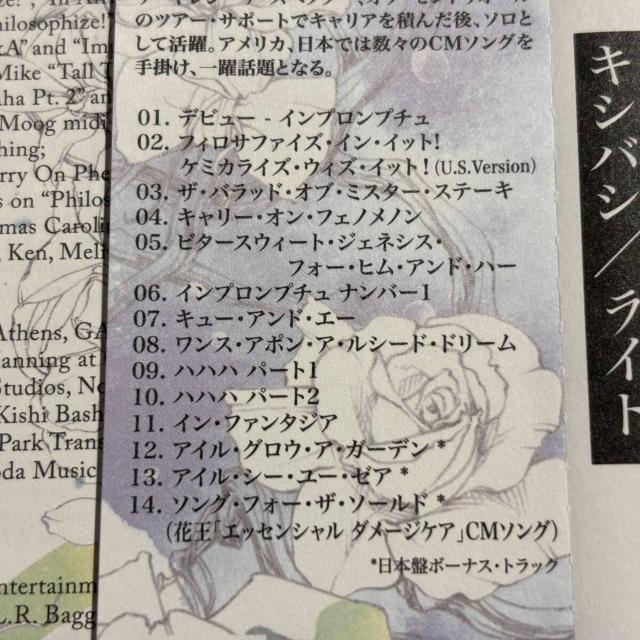 Philosophize!
A" and "Im
Mike "Tall T
ha Pt. 2" an
Moog midi
hing;
rry On Phe
s on "Philos
mas Carol
, Ken, Mel
Athens, GA
lanning at
Studios, No
Kishi Bash
Park Trans
oda Music
ntertainm
L.R. Bagg
のツアー・サポートでキャリアを積んだ後、ソロと
して活躍。アメリカ、日本では数々のCMソングを
手掛け、一躍話題となる。
01. デビュー - インプロンプチュ
02. フィロサファイズ・イン・イット!
ケミカライズ・ウィズ・イット! (U.S.Version)
03. ザ・バラッド・オブ・ミスター・ステーキ
04. キャリー・オン・フェノメノン
05. ビタースウィート・ジェネシス・
フォー・ヒム・アンド・ハー
06. インプロンプチュ ナンバー1
07. キュー・アンド・エー
08. ワンス・アポン・ア・ルシード・ドリーム
09. ハハハ パート1
10. ハハハ パート2
11. イン・ファンタジア
12. アイル・グロウ・ア・ガーデン *
13. アイル・シー・ユー・ゼア *
14. ソング・フォー・ザ・ソールド *
(花王「エッセンシャル ダメージケア」CMソング)
*日本盤ボーナス・トラック
キシバシ/ライト